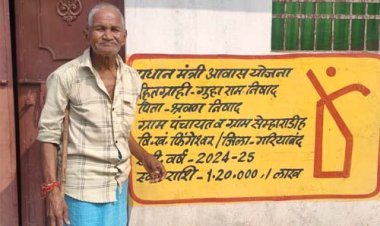 प्रधान मंत्री आवास योजना
हितग्राही - गुहा राम निषाद
पिता - श्रवण निषाद
ग्राम पंचायत व ग्राम सेम्हाराडीह
वि.खं. फिंगेश्वर / जिला - गरियाबंद
वर्ष - 2024-25
राशि - 1,20,000 / लाख